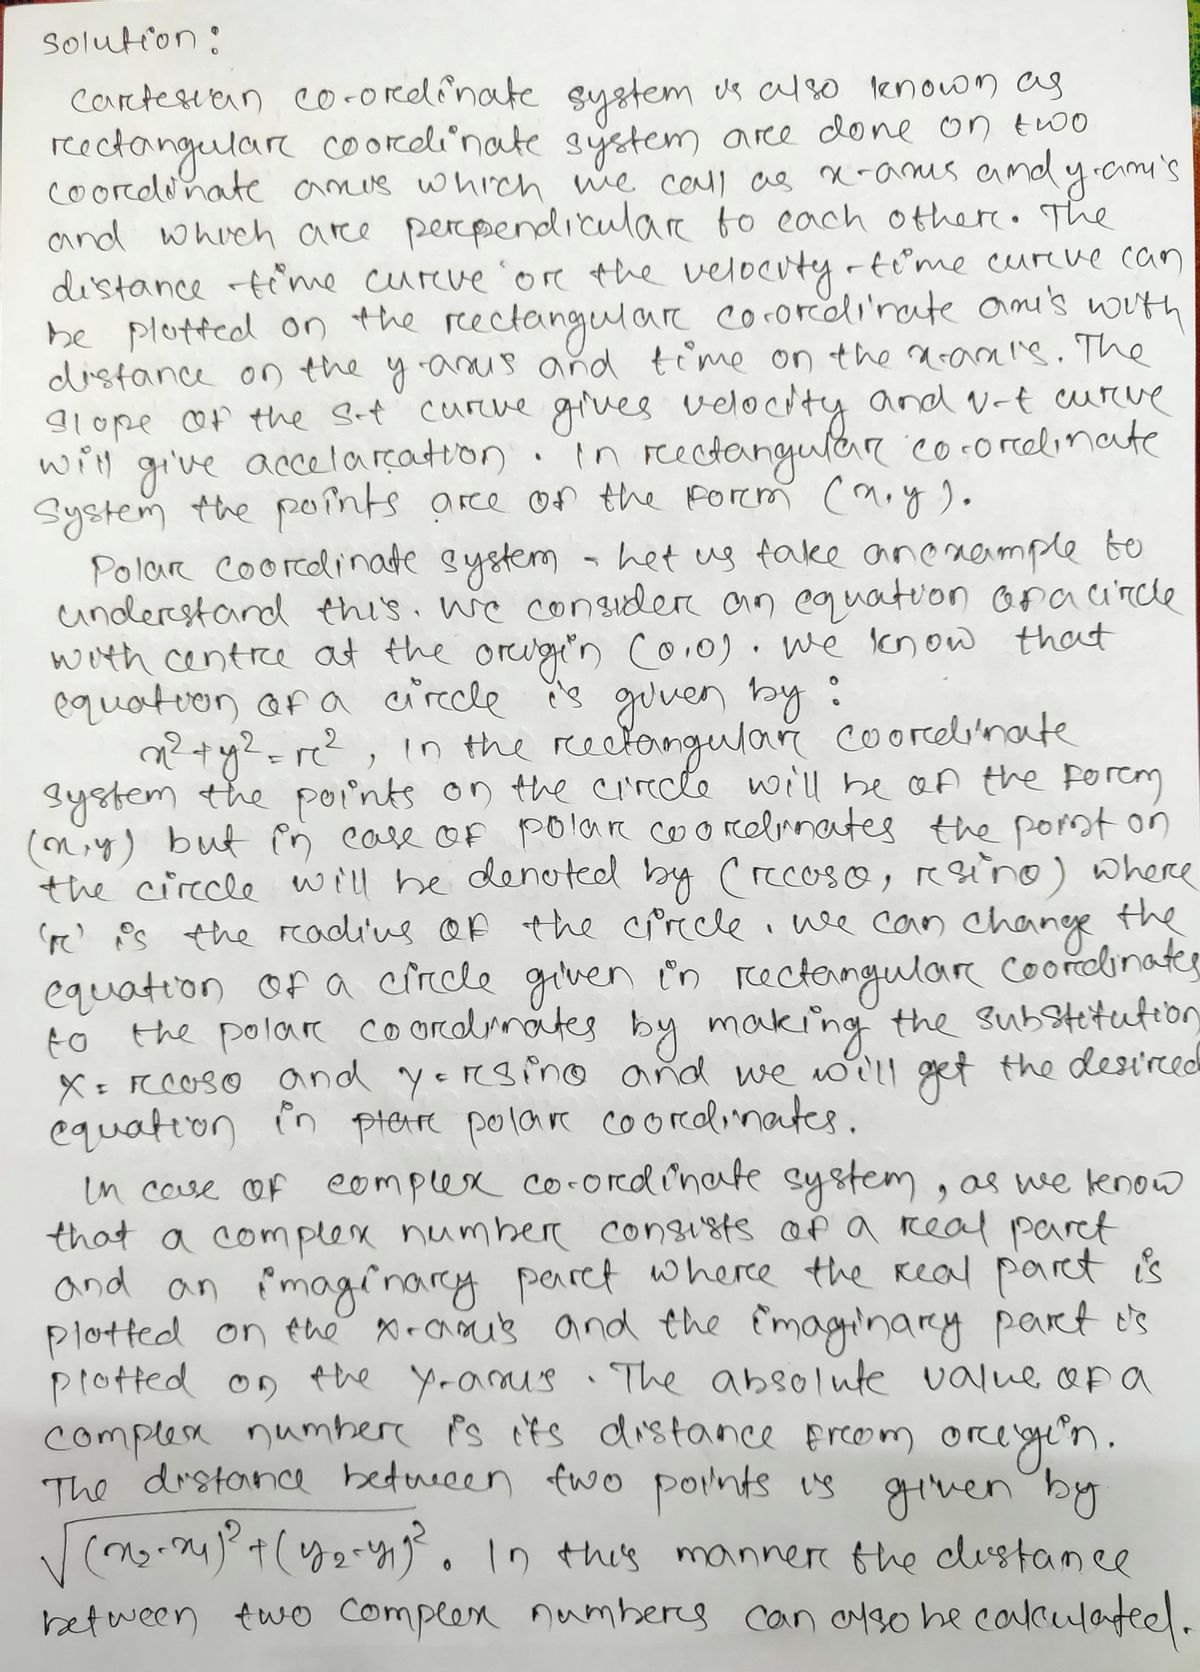 Solution:
Cartesian co-ordinate system is also known as
rectangular coordinate system are done on two
coordinate axis which we call as x-axis and y-axis
and which are perpendicular to each other. The
distance-time curve or the velocity-time curve can
be plotted on the rectangular co-ordinate axis with
distance on the y-axis and time on the x-axis. The
slope of the s-t curve gives velocity and v-t curve
will give accelaration. In rectangular co-ordinate
system the points are of the form (x,y).
Polar coordinate system - Let us take an example to
understand this. We consider an equation of a circle
with centre at the origin (0,0). We know that
equation of a circle is given by:
x²+y²=r², in the rectangular coordinate
system the points on the circle will be of the form
(x,y) but in case of polar coordinates the point on
the circle will be denoted by (rcosθ, rsinθ) where
'r' is the radius of the circle. We can change the
equation of a circle given in rectangular coordinates
to the polar coordinates by making the substitution
x = rcosθ and y = rsinθ and we will get the desired
equation in polar coordinates.
In case of complex co-ordinate system, as we know
that a complex number consists of a real part
and an imaginary part where the real part is
plotted on the x-axis and the imaginary part is
plotted on the y-axis. The absolute value of a
complex number is its distance from origin.
The distance between two points is given by
√(x₂-x₁)²+(y₂-y₁)². In this manner the distance
between two complex numbers can also be calculated.